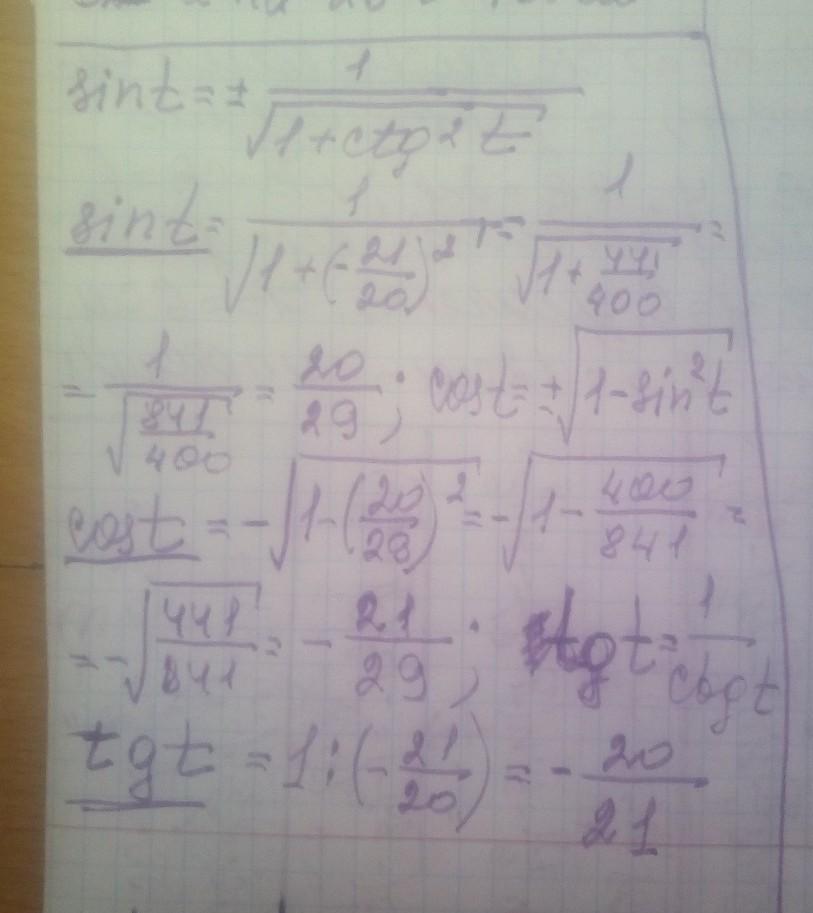 sint = ± 1/√(1+ctg²t)
sint = 1/√(1+(-21/20)²) = 1/√(1+441/400) =
= 1/√(841/400) = 20/29; cost = ±√(1-sin²t)
cost = -√(1-(20/29)²) = -√(1-400/841) =
= -√(441/841) = -21/29; tgt = 1/ctgt
tgt = 1:(-21/20) = -20/21